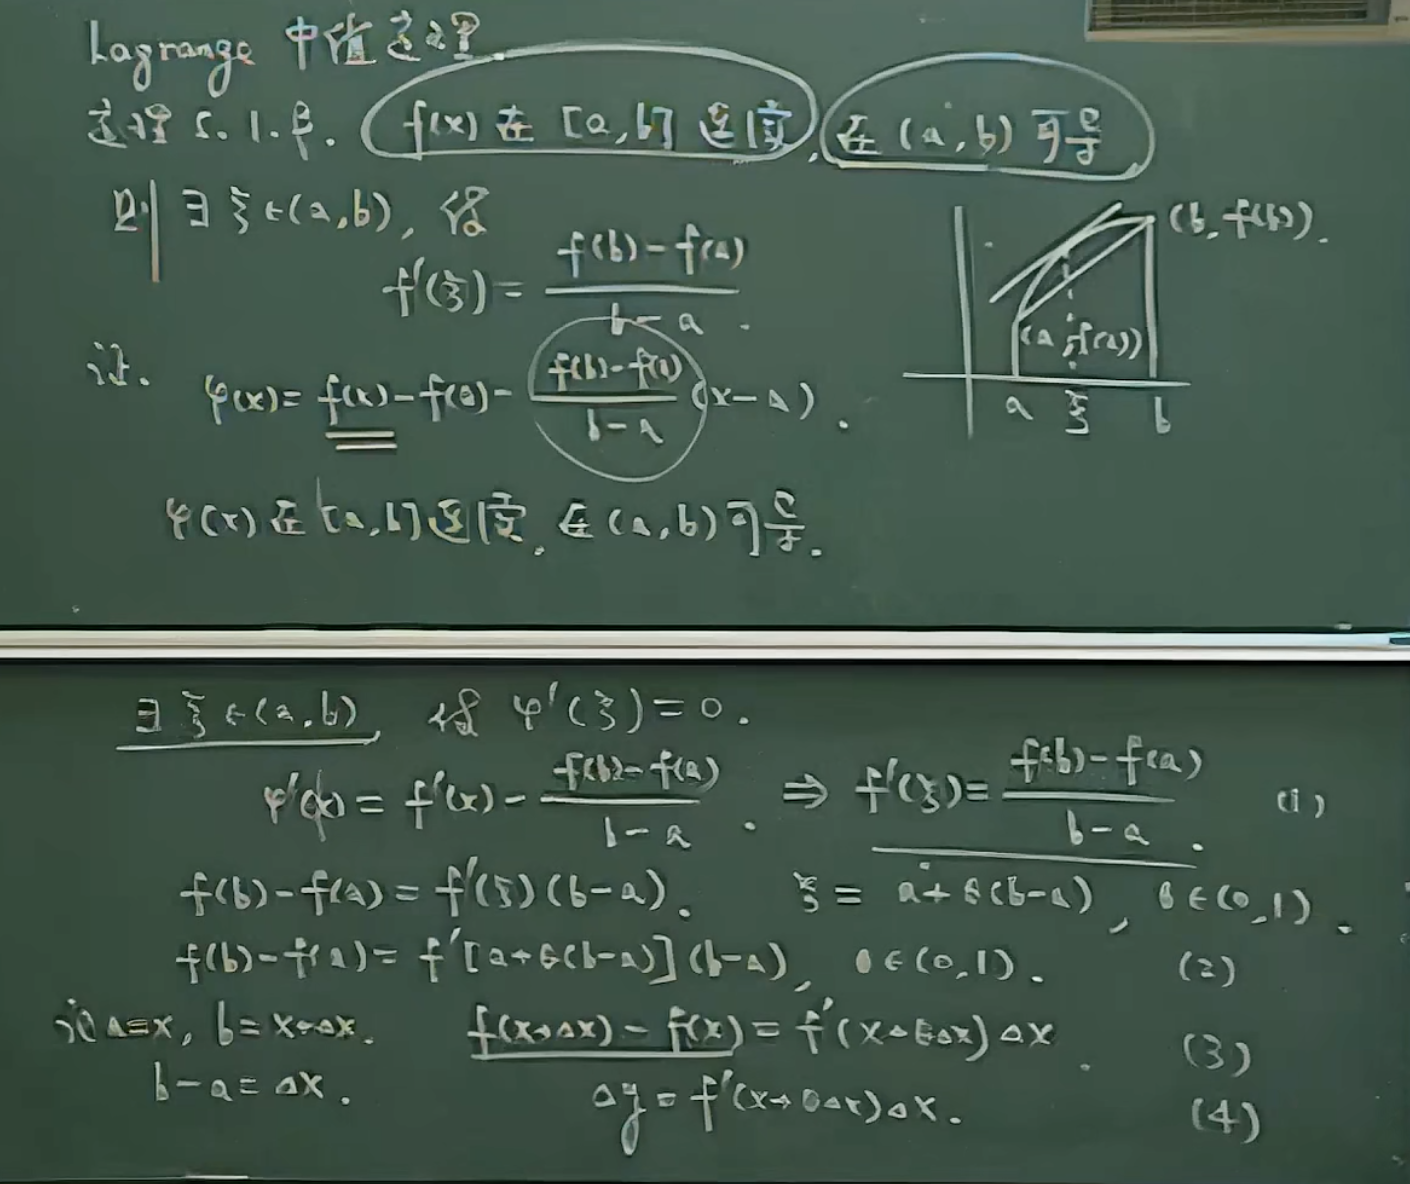 Lagrange 中值定理
定理 5.1.3. f(x) 在 [a,b] 连续, 在 (a,b) 可导
则 ∃ ξ∈(a,b), 使
f'(ξ) = \frac{f(b)-f(a)}{b-a}.
(b, f(b)).
(a, f(a))
a ξ b
证. φ(x) = f(x)-f(a)-\frac{f(b)-f(a)}{b-a}(x-a).
φ(x) 在 [a,b] 连续, 在 (a,b) 可导.
∃ ξ∈(a,b) 使 φ'(ξ)=0.
φ'(x) = f'(x) - \frac{f(b)-f(a)}{b-a}. ⇒ f'(ξ) = \frac{f(b)-f(a)}{b-a}. (1)
f(b)-f(a) = f'(ξ)(b-a). ξ = a+θ(b-a), θ∈(0,1).
f(b)-f(a) = f'[a+θ(b-a)](b-a), θ∈(0,1). (2)
记 a=x, b=x+Δx. f(x+Δx) - f(x) = f'(x+θΔx)Δx. (3)
b-a = Δx. Δy = f'(x+θΔx)Δx. (4)